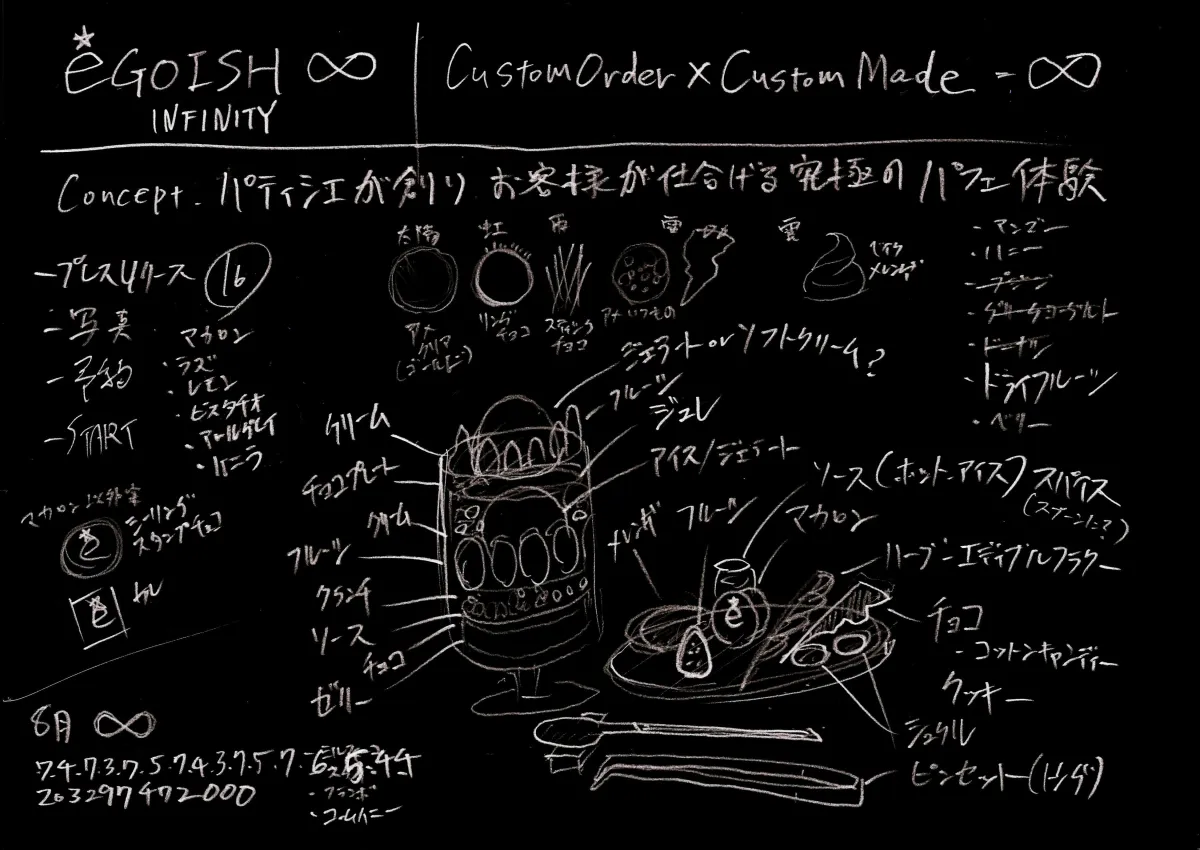 eGOISH ∞
INFINITY
CustomOrder × CustomMade = ∞
Concept. パティシエが創り お客様が仕上げる究極のパフェ体験
ープレスリリース 16
ー写真
ー予約
ーSTART
マカロン
・ラズ
・レモン
・ピスタチオ
・アールグレイ
・バニラ
マカロン以外案
シーリング
スタンプチョコ
e
e
太陽
虹
雨
雷
雲
アメ
クリア
(ゴールド)
リング
チョコ
スティック
チョコ
アメ いつもの
ベイク
メレンゲ
・マンゴー
・ハニー
・プリン
・グリークヨーグルト
・ドーナツ
・ドライフルーツ
・ベリー
ジェラート or ソフトクリーム?
フルーツ
ジュレ
アイス/ジェラート
クリーム
チョコプレート
クリーム
フルーツ
クランチ
ソース
チョコ
ゼリー
ソース(ホット・アイス) スパイス
(スプーンに?)
マカロン
フルーツ
メレンゲ
e
ハーブ・エディブルフラワー
チョコ
・コットンキャンディー
クッキー
シュクル
ピンセット(トング)
8月 ∞
7.4.7.3.7.5.7.4.3.7.5.7.6.5.4.4
203297472000
・コームハニー